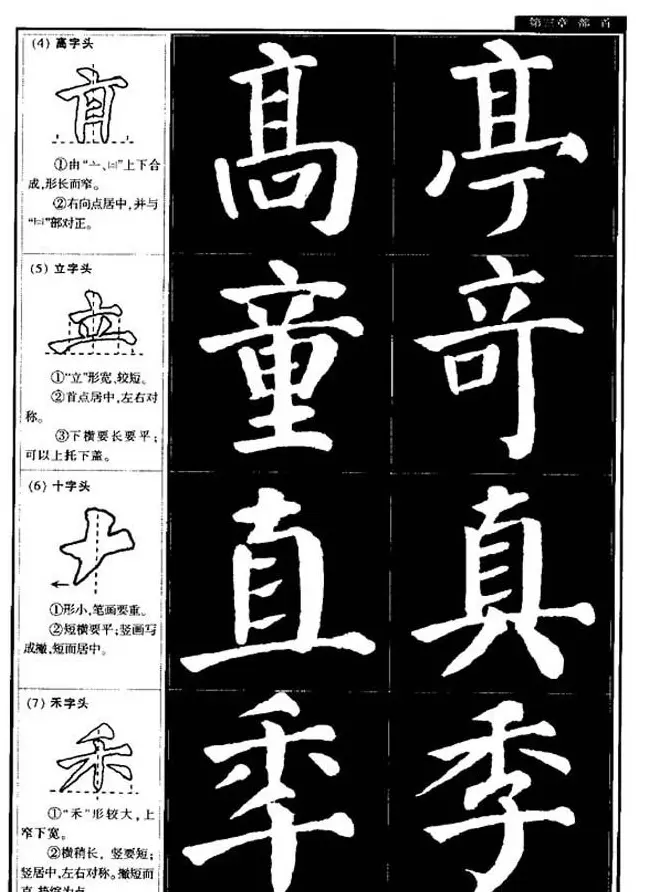 第三章 部 首
(4) 高字头
①由“亠、
”上下合
成,形长而窄。
②右向点居中,并与
部对正。
髙 亭
(5) 立字头
立
①“立”形宽,较短。
②首点居中,左右对
称。
③下横要长要平;
可以上托下盖。
童 竒
(6) 十字头
①形小,笔画要重。
②短横要平;竖画写
成撇,短而居中。
直 真
(7) 禾字头
禾
①“禾”形较大,上
窄下宽。
②横稍长,竖要短;
竖居中,左右对称。撇短而
秊 季